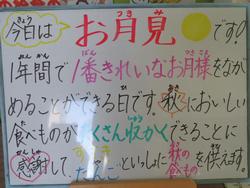 今日は お月見 です!
1年間で1番きれいなお月様をなが
めることができる日です。秋においしい
食べものがたくさん収かくできることに
感謝して、すすき
だんごといっしょに秋の食もつを供えます